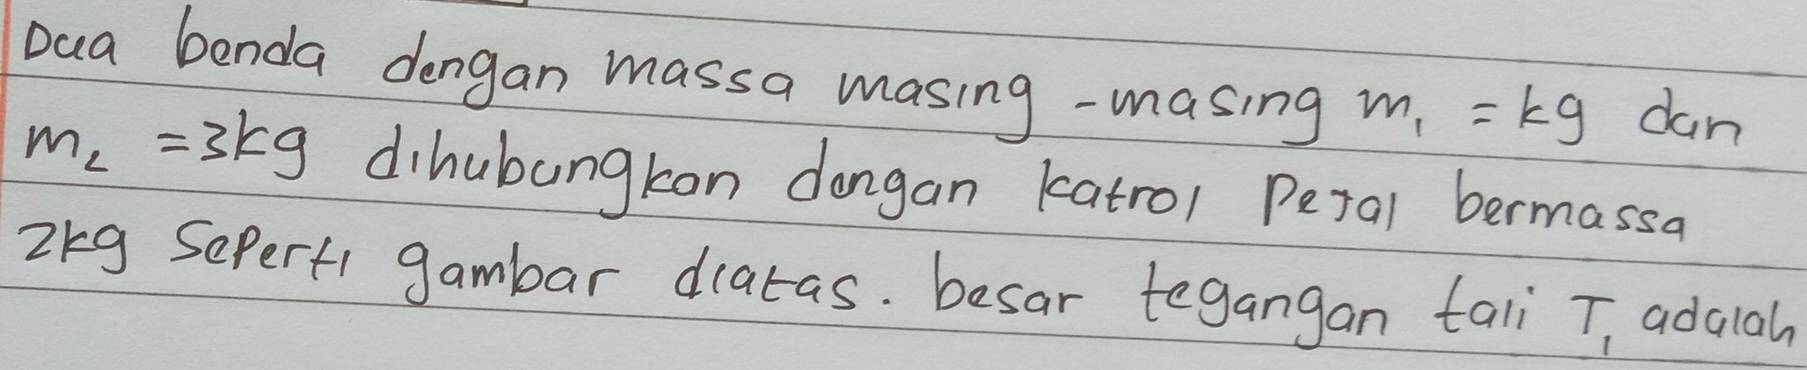 Dua benda dengan massa masing-masing m₁ = kg dan
m₂ = 3kg dihubungkan dengan katrol Pejal bermassa
2kg Seperti gambar diatas. besar tegangan tali T₁ adalah